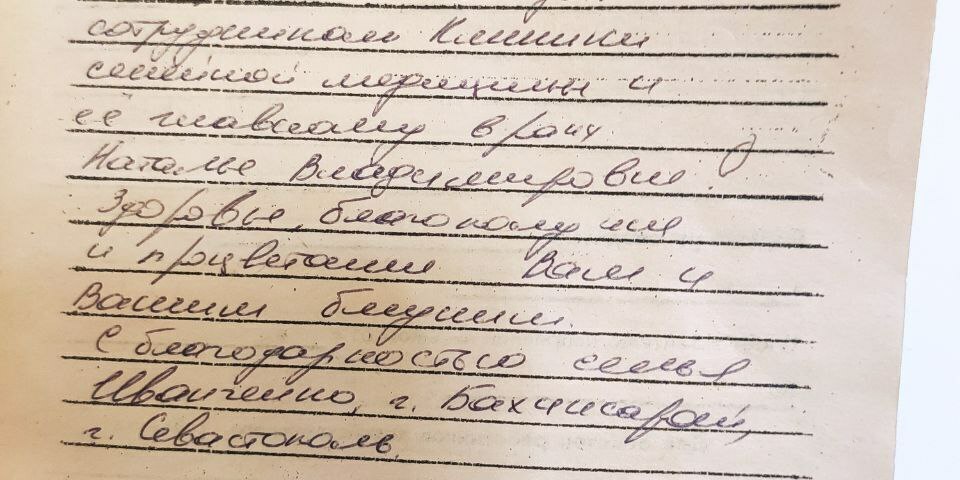 сотрудникам Клиники
семейной медицины и
её главному врачу
Наталье Владимировне.
Здоровья, благополучия
и процветания Вам и
Вашим близким.
С благодарностью семья
Иванченко, г. Бахчисарай,
г. Севастополь.